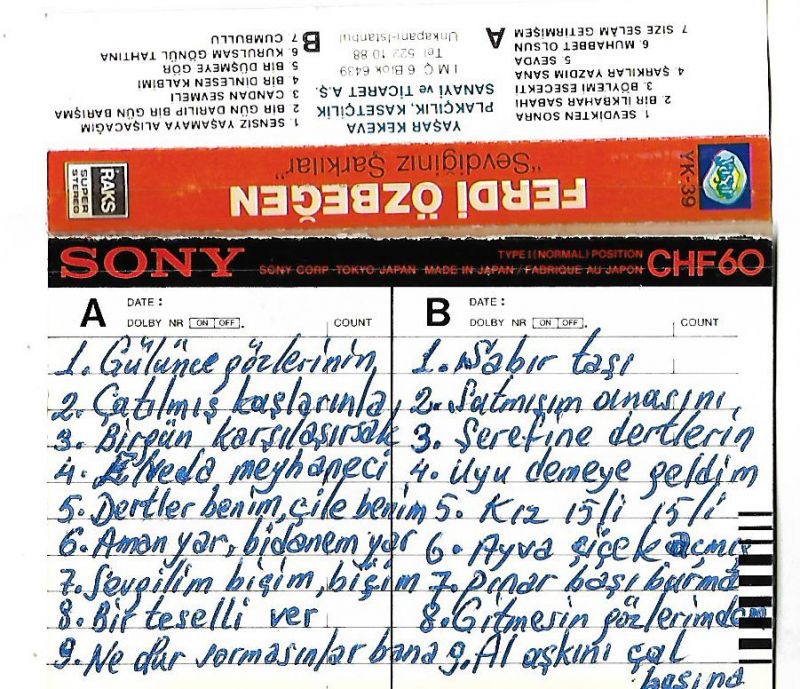 7 SİZE SELÂM GETİRMİŞEM
6. MUHABBET OLSUN
5 SEVDA
4 ŞARKILAR YAZDIM SANA
3. BÖYLEMİ ESECEKTİ
2. BİR İLKBAHAR SABAHI
1. SEVDİKTEN SONRA
A
Unkapanı-İstanbul
Tel 522 10 88
I M Ç 6 Blok 6439
SANAYİ ve TİCARET A.Ş.
PLAKÇILIK, KASETÇİLİK
YAŞAR KEKEVA
B
7 CUMBULLU
6. KURULSAM GÖNÜL TAHTINA
5 BİR DÜŞMEYE GÖR
4 BİR DİNLESEN KALBİMİ
3. CANDAN SEVMELİ
2 BİR GÜN DARILIP BİR GÜN BARIŞMA
1. SENSİZ YAŞAMAYA ALIŞACAĞIM
Yaşar
YK-39
"Sevdiğiniz Şarkılar"
FERDİ ÖZBEĞEN
RAKS
SUPER
STEREO
SONY
TYPE I (NORMAL) POSITION
SONY CORP TOKYO JAPAN MADE IN JAPAN / FABRIQUE AU JAPON
CHF60
A
DATE :
DOLBY NR ON OFF . COUNT
1. Gülünce gözlerinin
2. Çatılmış kaşlarınla
3. Birgün karşılaşırsak
4. Elveda meyhaneci
5. Dertler benim, çile benim
6. Aman yar, bidanem yar
7. Sevgilim biçim, biçim
8. Bir teselli ver
9. Ne olur sormasınlar bana
B
DATE :
DOLBY NR ON OFF . COUNT
1. Sabır taşı
2. Satmışım anasını,
3. Şerefine dertlerin
4. Uyu demeye geldim
5. Kız 15 li 15 li
6. Ayva çiçek açmış
7. Pınar başı burma
8. Gitmesin gözlerimden
9. Al aşkını çal
başına